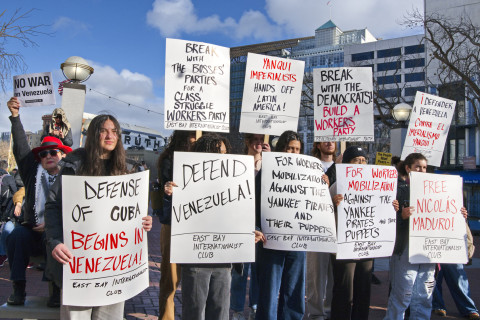 NO WAR
on Venezuela
BREAK
with THE
BOSSES'
PARTIES!
FOR A
CLASS
STRUGGLE
WORKERS
PARTY
EAST BAY
INTERNATIONALIST CLUB
YANQUI
IMPERIALISTS
HANDS OFF
LATIN
AMERICA!
EAST BAY
INTERNATIONALIST CLUB
BREAK WITH
THE
DEMOCRATS!
BUILD A
WORKERS
PARTY
¡DEFENDER
VENEZUELA
CONTRA EL
IMPERIALISMO
YANQUI!
TRUTH
DEFENSE
OF CUBA
BEGINS IN
VENEZUELA!
EAST BAY
INTERNATIONALIST
CLUB
DEFEND
VENEZUELA!
EAST BAY
INTERNATIONALIST
CLUB
FOR WORKERS
MOBILIZATION
AGAINST THE
YANKEE
PIRATES
AND
THEIR PUPPETS
EAST BAY
INTERNATIONALIST CLUB
FOR WORKERS
MOBILIZATION
AGAINST THE
YANKEE
PIRATES
AND THEIR
PUPPETS
EAST BAY
INTERNATIONALIST
CLUB
FREE
NICOLÁS
MADURO!
EAST BAY
INTERNATIONALIST
CLUB